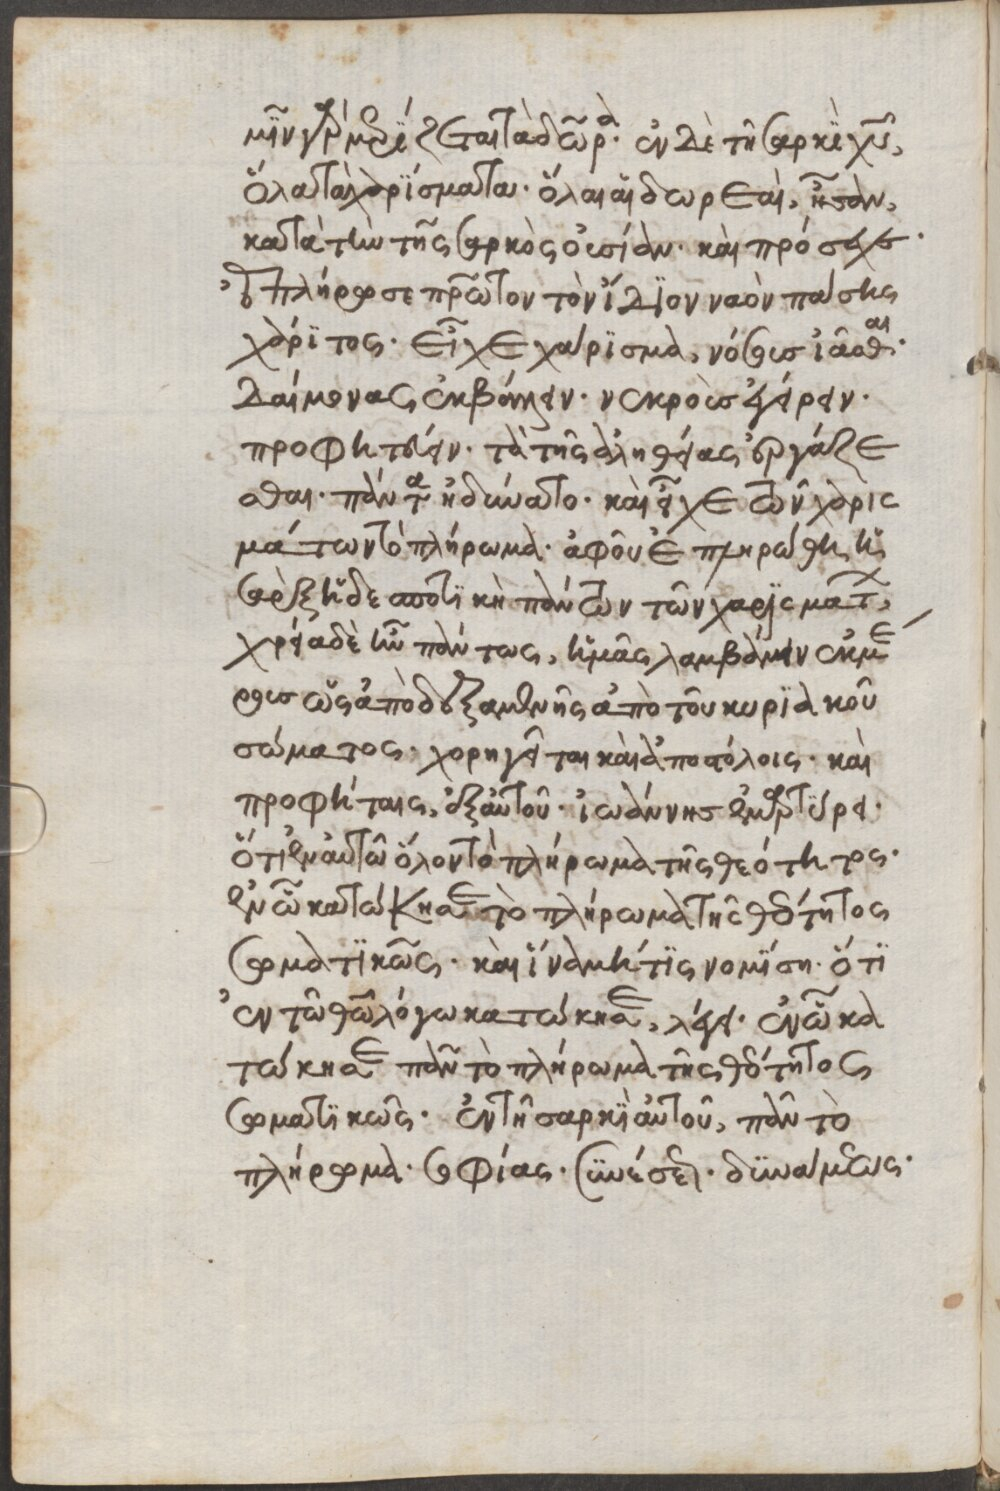 μῖν γὰρ μερίζεται τὰ δῶρα· ἐν δὲ τῆ σαρκὶ χυ,
ὅλα τὰ χαρίσματα· ὅλαι αἱ δωρεαὶ, ἦσαν,
κατὰ τὴν τῆς σαρκὸς οὐσίαν· καὶ πρόσχες·
ἐπλήρωσε πρῶτον τὸν ἴδϊον ναὸν πάσης
χάρϊτος· εἶχε χαρίσμα, νόσους ἰᾶσθαι·
δαίμονας ἐκβάλλειν· νεκροὺς ἐγείρειν·
προφητεύειν· τὰ τῆς ἀληθείας ἐργάζε
σθαι· πάντα ἠδύνατο· καὶ εἶχε τῶν χαρις
μάτων τὸ πλήρωμα· ἀφοῦ ἐπληρώθη ἡ
σὰρξ ἡ δεσποτϊκὴ πάντων τῶν χαρϊσμάτ,
χρεία δὲ ἦν πάντως, ἡμᾶς λαμβάνειν ἐκ μέ
ρους ὡς ἀπὸ δεξαμενῆς ἀπὸ τοῦ κυρϊακοῦ
σώματος· χορηγεῖται καὶ ἀποστόλοις· καὶ
προφήταις, ἐξ αὐτοῦ· ἰωάννης ἐμαρτύρει·
ὅτι ἐν αὐτῶ ὅλον τὸ πλήρωμα τῆς θεότητος·
ἐν ὧ κατώκησε τὸ πλήρωμα τῆς θεότητος
σωματϊκῶς· καὶ ἵνα μή τϊς νομϊση· ὅτϊ
ἐν τῶ θῶ λόγω κατώκησε, λέγει· ἐν ὧ κα
τώκησε πᾶν τὸ πλήρωμα τῆς θεότητος
σωματϊκῶς· ἐν τῆ σαρκὶ αὐτοῦ, πᾶν τὸ
πλήρωμα· σοφίας· συνέσεως· δυνάμεως·